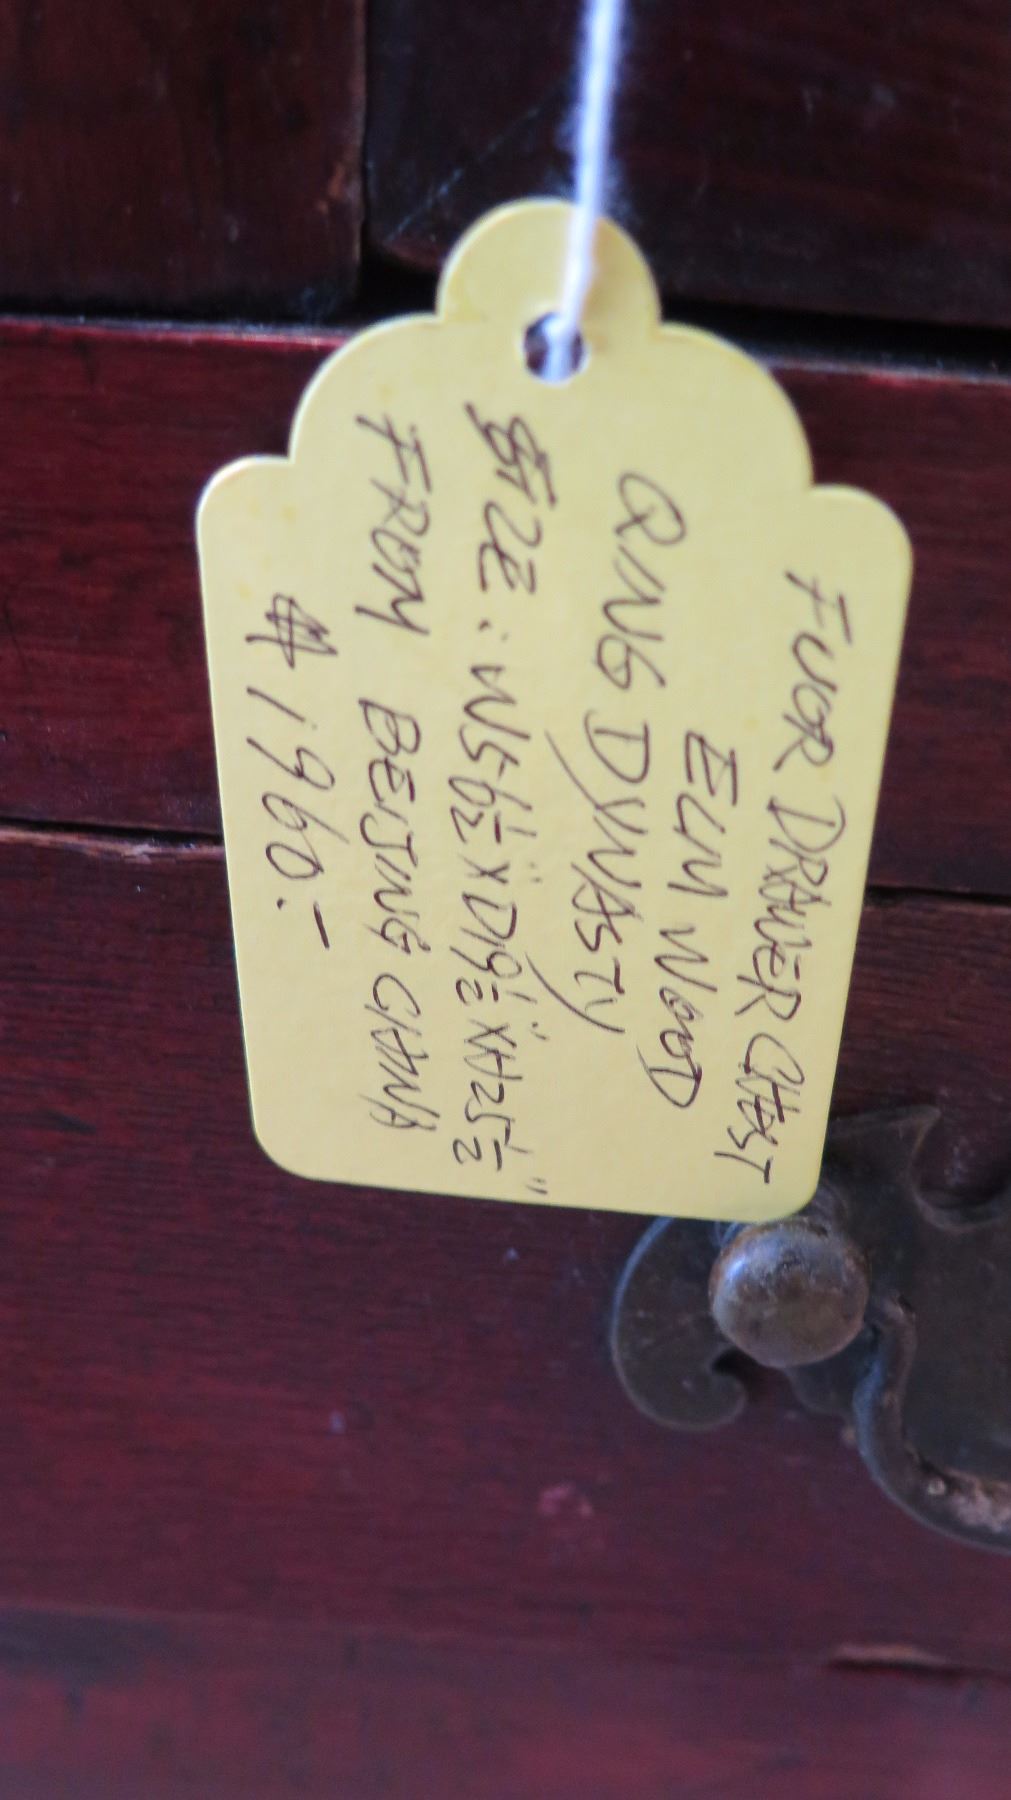 FUOR DRAWER CHEST
ELM WOOD
QING DYNASTY
SIZE: W56½" X D19½" X H25½"
FROM BEIJING CHINA
$1960:-